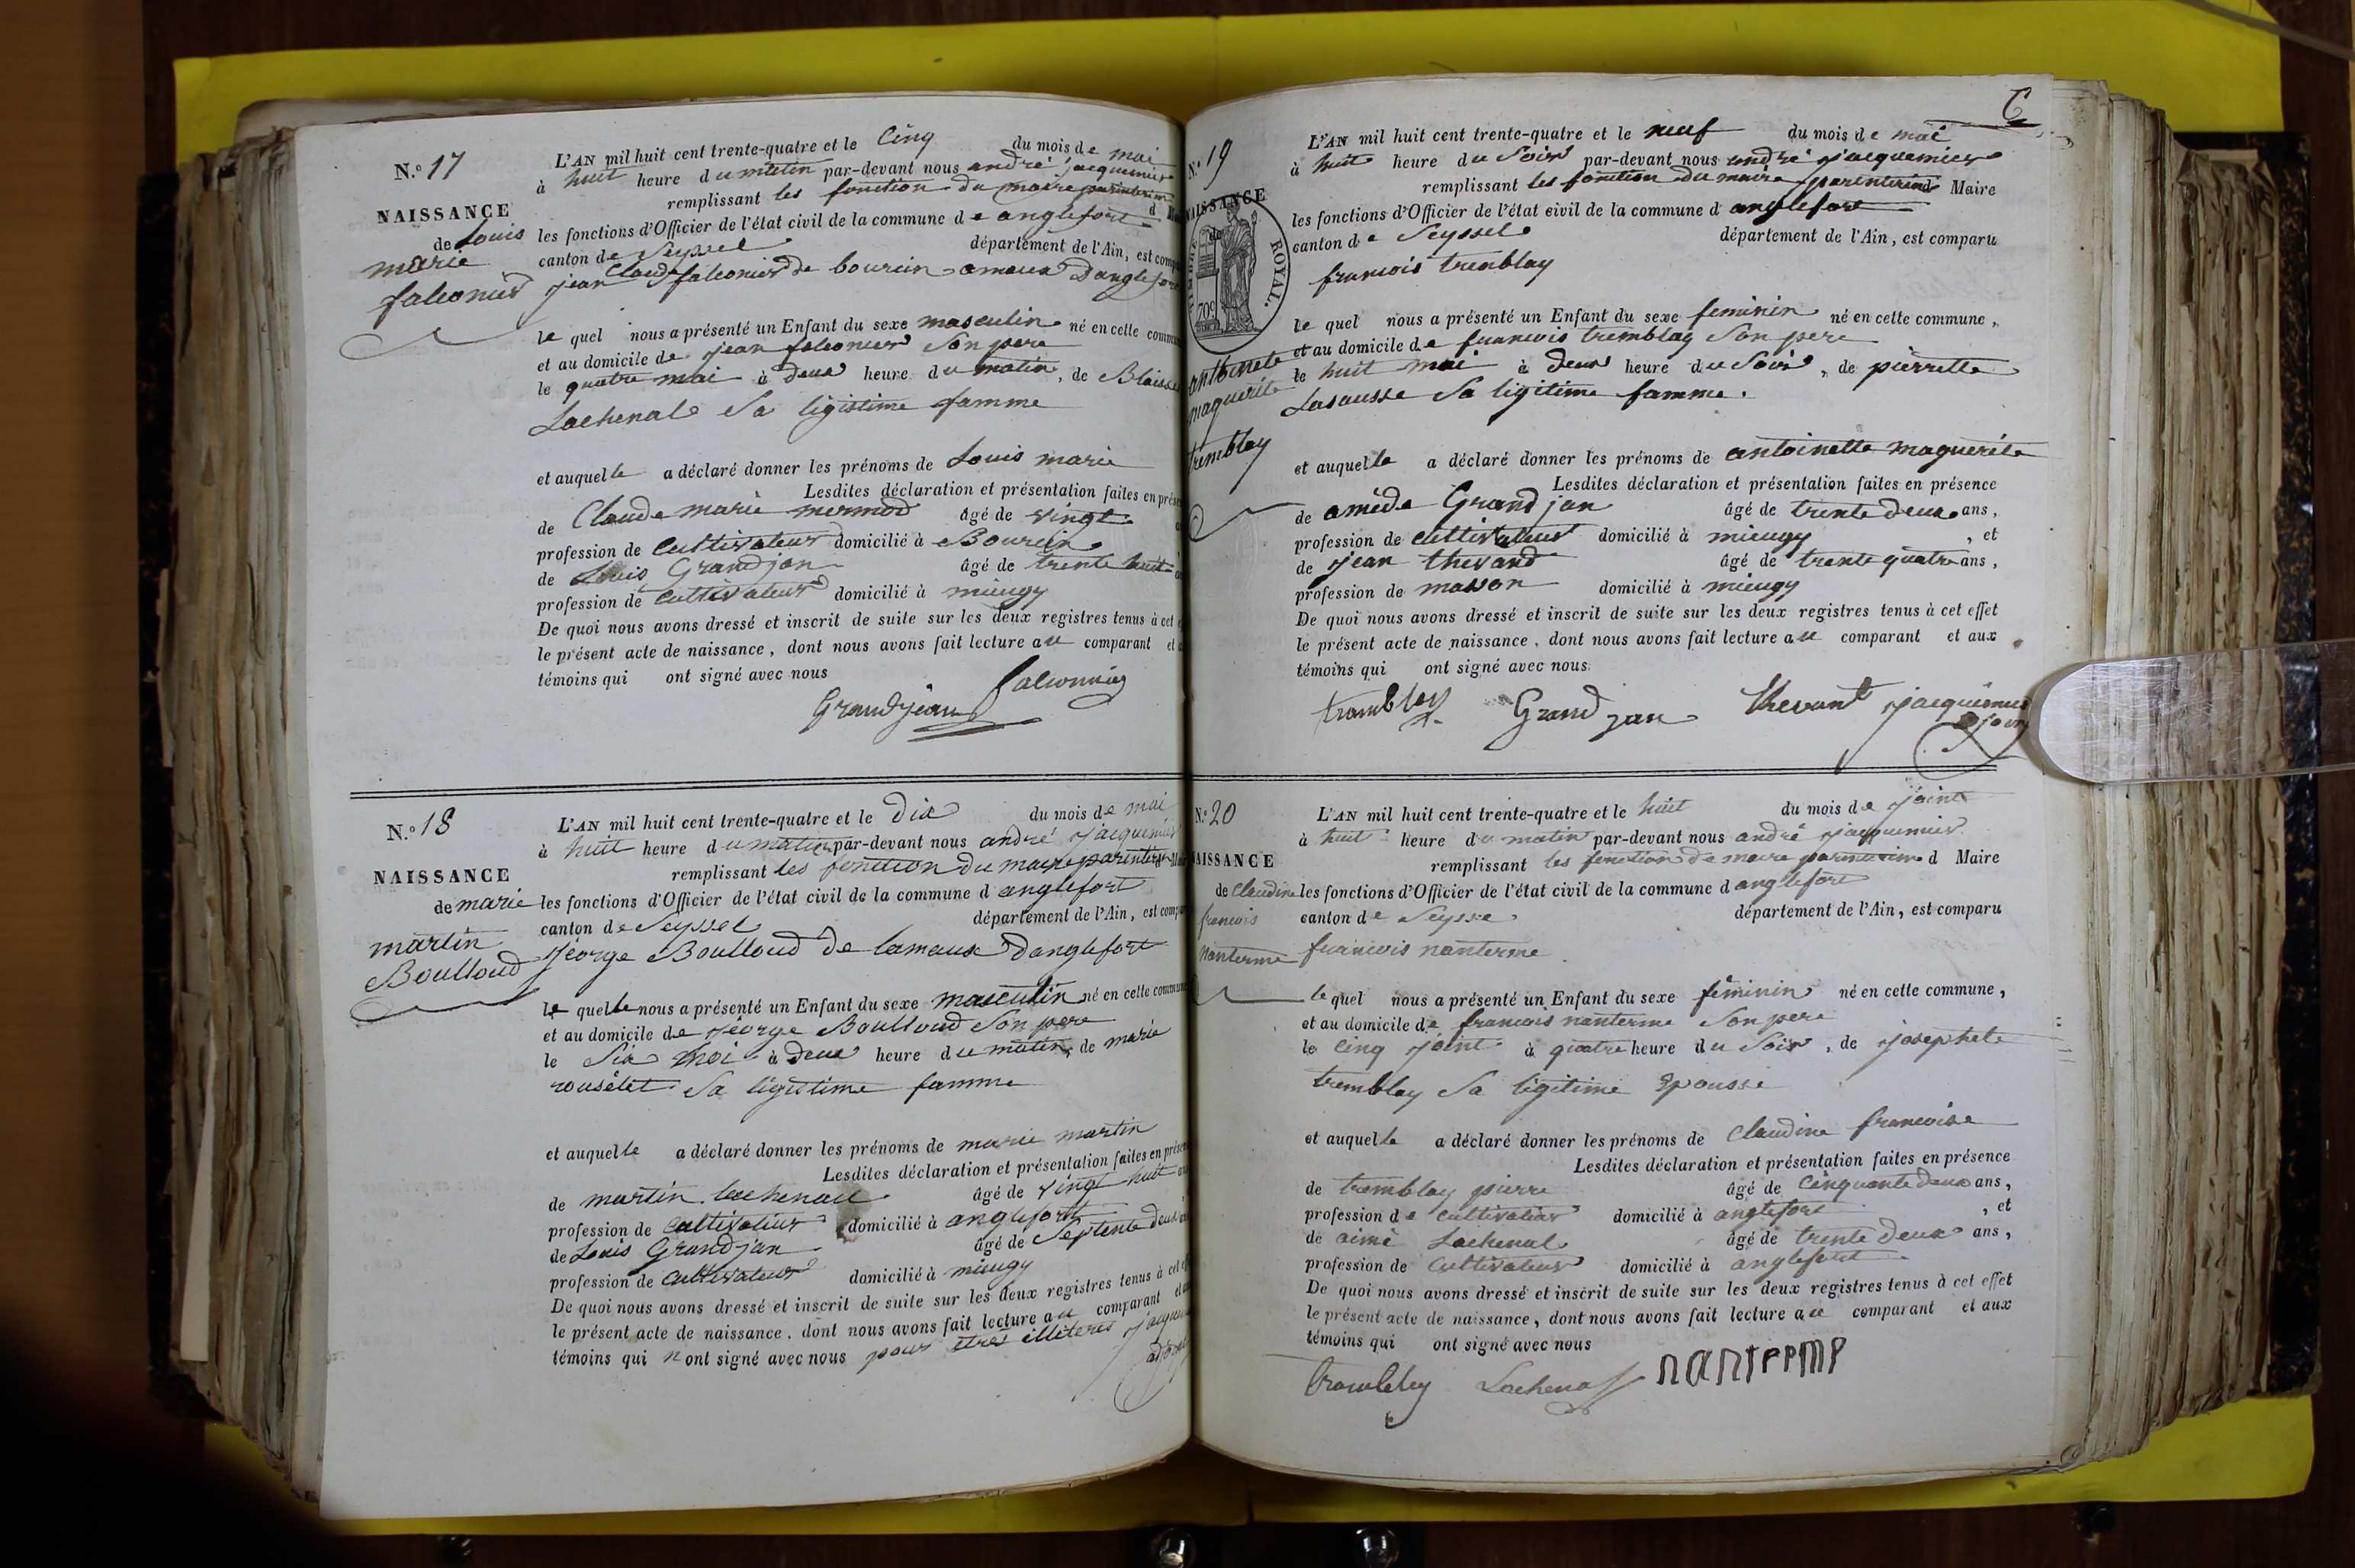 N.o 17
NAISSANCE
de Louis
marie
falconier
L'AN mil huit cent trente-quatre et le Cinq du mois de mai
à huit heure du mtetin par-devant nous andré jacquemier
remplissant les fonction du maire parinterim d
les fonctions d'Officier de l'état civil de la commune de anglefort
canton de Seyssel département de l'Ain, est comp
jean Claude falconier de bourcin amaux Danglefort
le quel nous a présenté un Enfant du sexe masculin né en cette commun
et au domicile de jean falconier Son pere
le quatre mai à deux heure du matin, de Blaise
Lachenal Sa ligistime famme
et auquelle a déclaré donner les prénoms de Louis marie
Lesdites déclaration et présentation faites en prése
de Claude marie mermod âgé de vingt
profession de Cultivateur domicilié à Bourcin
de Louis Grandjan âgé de trente huit
profession de Cultivateur domicilié à mieugy
De quoi nous avons dressé et inscrit de suite sur les deux registres tenus à cet
le présent acte de naissance, dont nous avons fait lecture au comparant et
témoins qui ont signé avec nous
falconnier
Grandjean
N.o 18
NAISSANCE
de marie
martin
Boulloud
L'AN mil huit cent trente-quatre et le Dix du mois de mai
à huit heure du matin par-devant nous andré jacquemier
remplissant les fonction du maire parinterim
les fonctions d'Officier de l'état civil de la commune d anglefort
canton de Seyssel département de l'Ain, est comp
jéorge Boulloud de lamaux Danglefort
le quelle nous a présenté un Enfant du sexe masculin né en cette commun
et au domicile de jéorge Boulloud Son pere
le Six moi à deux heure du matin, de marie
rousélet Sa ligistime famme
et auquelle a déclaré donner les prénoms de marie martin
Lesdites déclaration et présentation faites en prése
de martin lachenal âgé de vingt huit an
profession de Cultivateur domicilié à anglefort
de Louis Grandjan âgé de Septente deux
profession de Cultivateur domicilié à mieugy
De quoi nous avons dressé et inscrit de suite sur les deux registres tenus à cet
le présent acte de naissance, dont nous avons fait lecture au comparant et
témoins qui n ont signé avec nous pour etres illiteres jacquem
adjoint
C
N.o 19
NAISSANCE
de
ROYAL.
70c
antoinete
maguerite
tremblay
L'AN mil huit cent trente-quatre et le neuf du mois de mai
à huit heure du Soir par-devant nous andré jacquemier
remplissant les fonction du maire parinterim d Maire
les fonctions d'Officier de l'état civil de la commune d anglefort
canton de Seyssel département de l'Ain, est comparu
francois tremblay
le quel nous a présenté un Enfant du sexe feminin né en cette commune,
et au domicile de francois tremblay Son pere
le huit mai à deux heure du Soir, de pierrette
Lasausse Sa ligitime famme.
et auquelle a déclaré donner les prénoms de antoinette maguerite
Lesdites déclaration et présentation faites en présence
de amede Grandjan âgé de trente deux ans,
profession de cultivateur domicilié à mieugy, et
de jean thevand âgé de trente quatre ans,
profession de masson domicilié à mieugy
De quoi nous avons dressé et inscrit de suite sur les deux registres tenus à cet effet
le présent acte de naissance, dont nous avons fait lecture au comparant et aux
témoins qui ont signé avec nous
tramblay Grandjan thevant jacquemier
adjoint
N.o 20
NAISSANCE
de Claudine
francois
Nanterme
L'AN mil huit cent trente-quatre et le huit du mois de joint
à huit heure du matin par-devant nous andré jacquemier
remplissant les fonction de maire parinterim d Maire
les fonctions d'Officier de l'état civil de la commune d anglefort
canton de Seysse département de l'Ain, est comparu
francois nanterme
le quel nous a présenté un Enfant du sexe féminin né en cette commune,
et au domicile de francois nanterme Son pere
le cinq joint à quatre heure du Soir, de josephete
tremblay Sa ligitime Epousse
et auquelle a déclaré donner les prénoms de Claudine francoise
Lesdites déclaration et présentation faites en présence
de tremblay pierre âgé de Cinquante deux ans,
profession de cultivateur domicilié à anglefort, et
de aimé Lachenal âgé de trente deux ans,
profession de Cultivateur domicilié à anglefort
De quoi nous avons dressé et inscrit de suite sur les deux registres tenus à cet effet
le présent acte de naissance, dont nous avons fait lecture au comparant et aux
témoins qui ont signé avec nous
trambley Lachenal nanterme